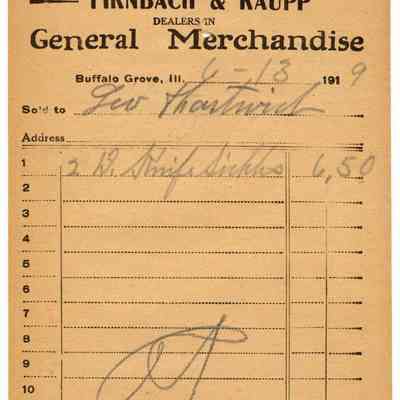 FIRNBACH & RAUPP
DEALERS IN
General Merchandise
Buffalo Grove, Ill. 6-13 1919
Sold to Geo
Address
1 2 D. Knife Sickles 6,50
2
3
4
5
6
7
8
9
10